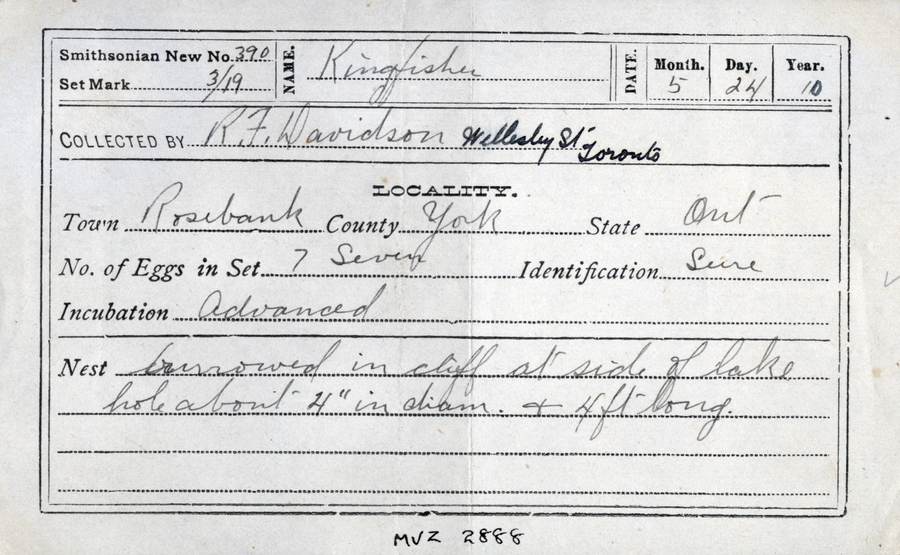 Smithsonian New No. 390 NAME. Kingfisher DATE. Month. Day. Year.
Set Mark 3/19 5 24 10
COLLECTED BY R.F. Davidson Wellesley St Toronto
LOCALITY.
Town Rosebank County York State Ont
No. of Eggs in Set 7 Seven Identification Sure
Incubation Advanced
Nest burrowed in cliff at side of lake
hole about 4" in diam. & 4 ft long.
MVZ 2888